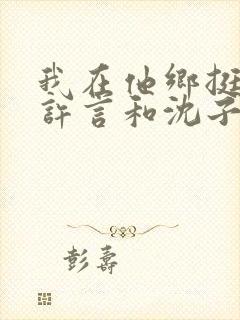 我在他鄉挺
許言和沈子
彭壽